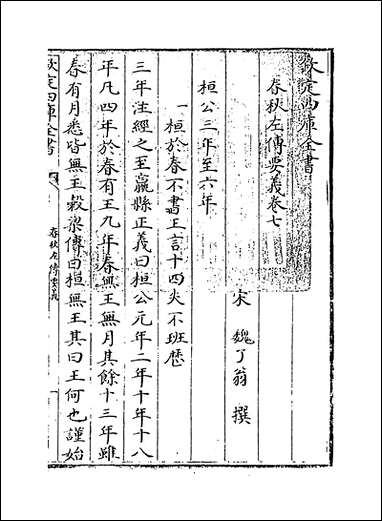 欽定四庫全書
春秋左傳要義卷七
宋 魏了翁 撰
桓公三年至六年
一桓於春不書王言十四失不班歷
三年注經之至嬴縣正義曰桓公元年二年十年十八
年凡四年於春有王九年春無王無月其餘十三年雖
春有月悉皆無王穀梁傳曰桓無王其曰王何也謹始
欽定四庫全書
春秋左傳要義